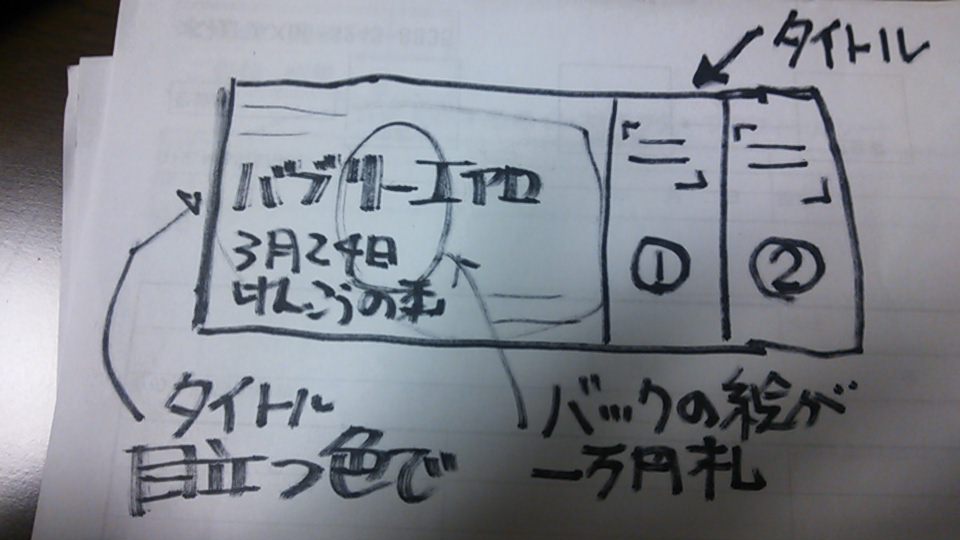 タイトル
バブリーエアロ
3月24日
けんぶの札
「 」
①
「 」
②
タイトル
目立つ色で
バックの絵が
一万円札